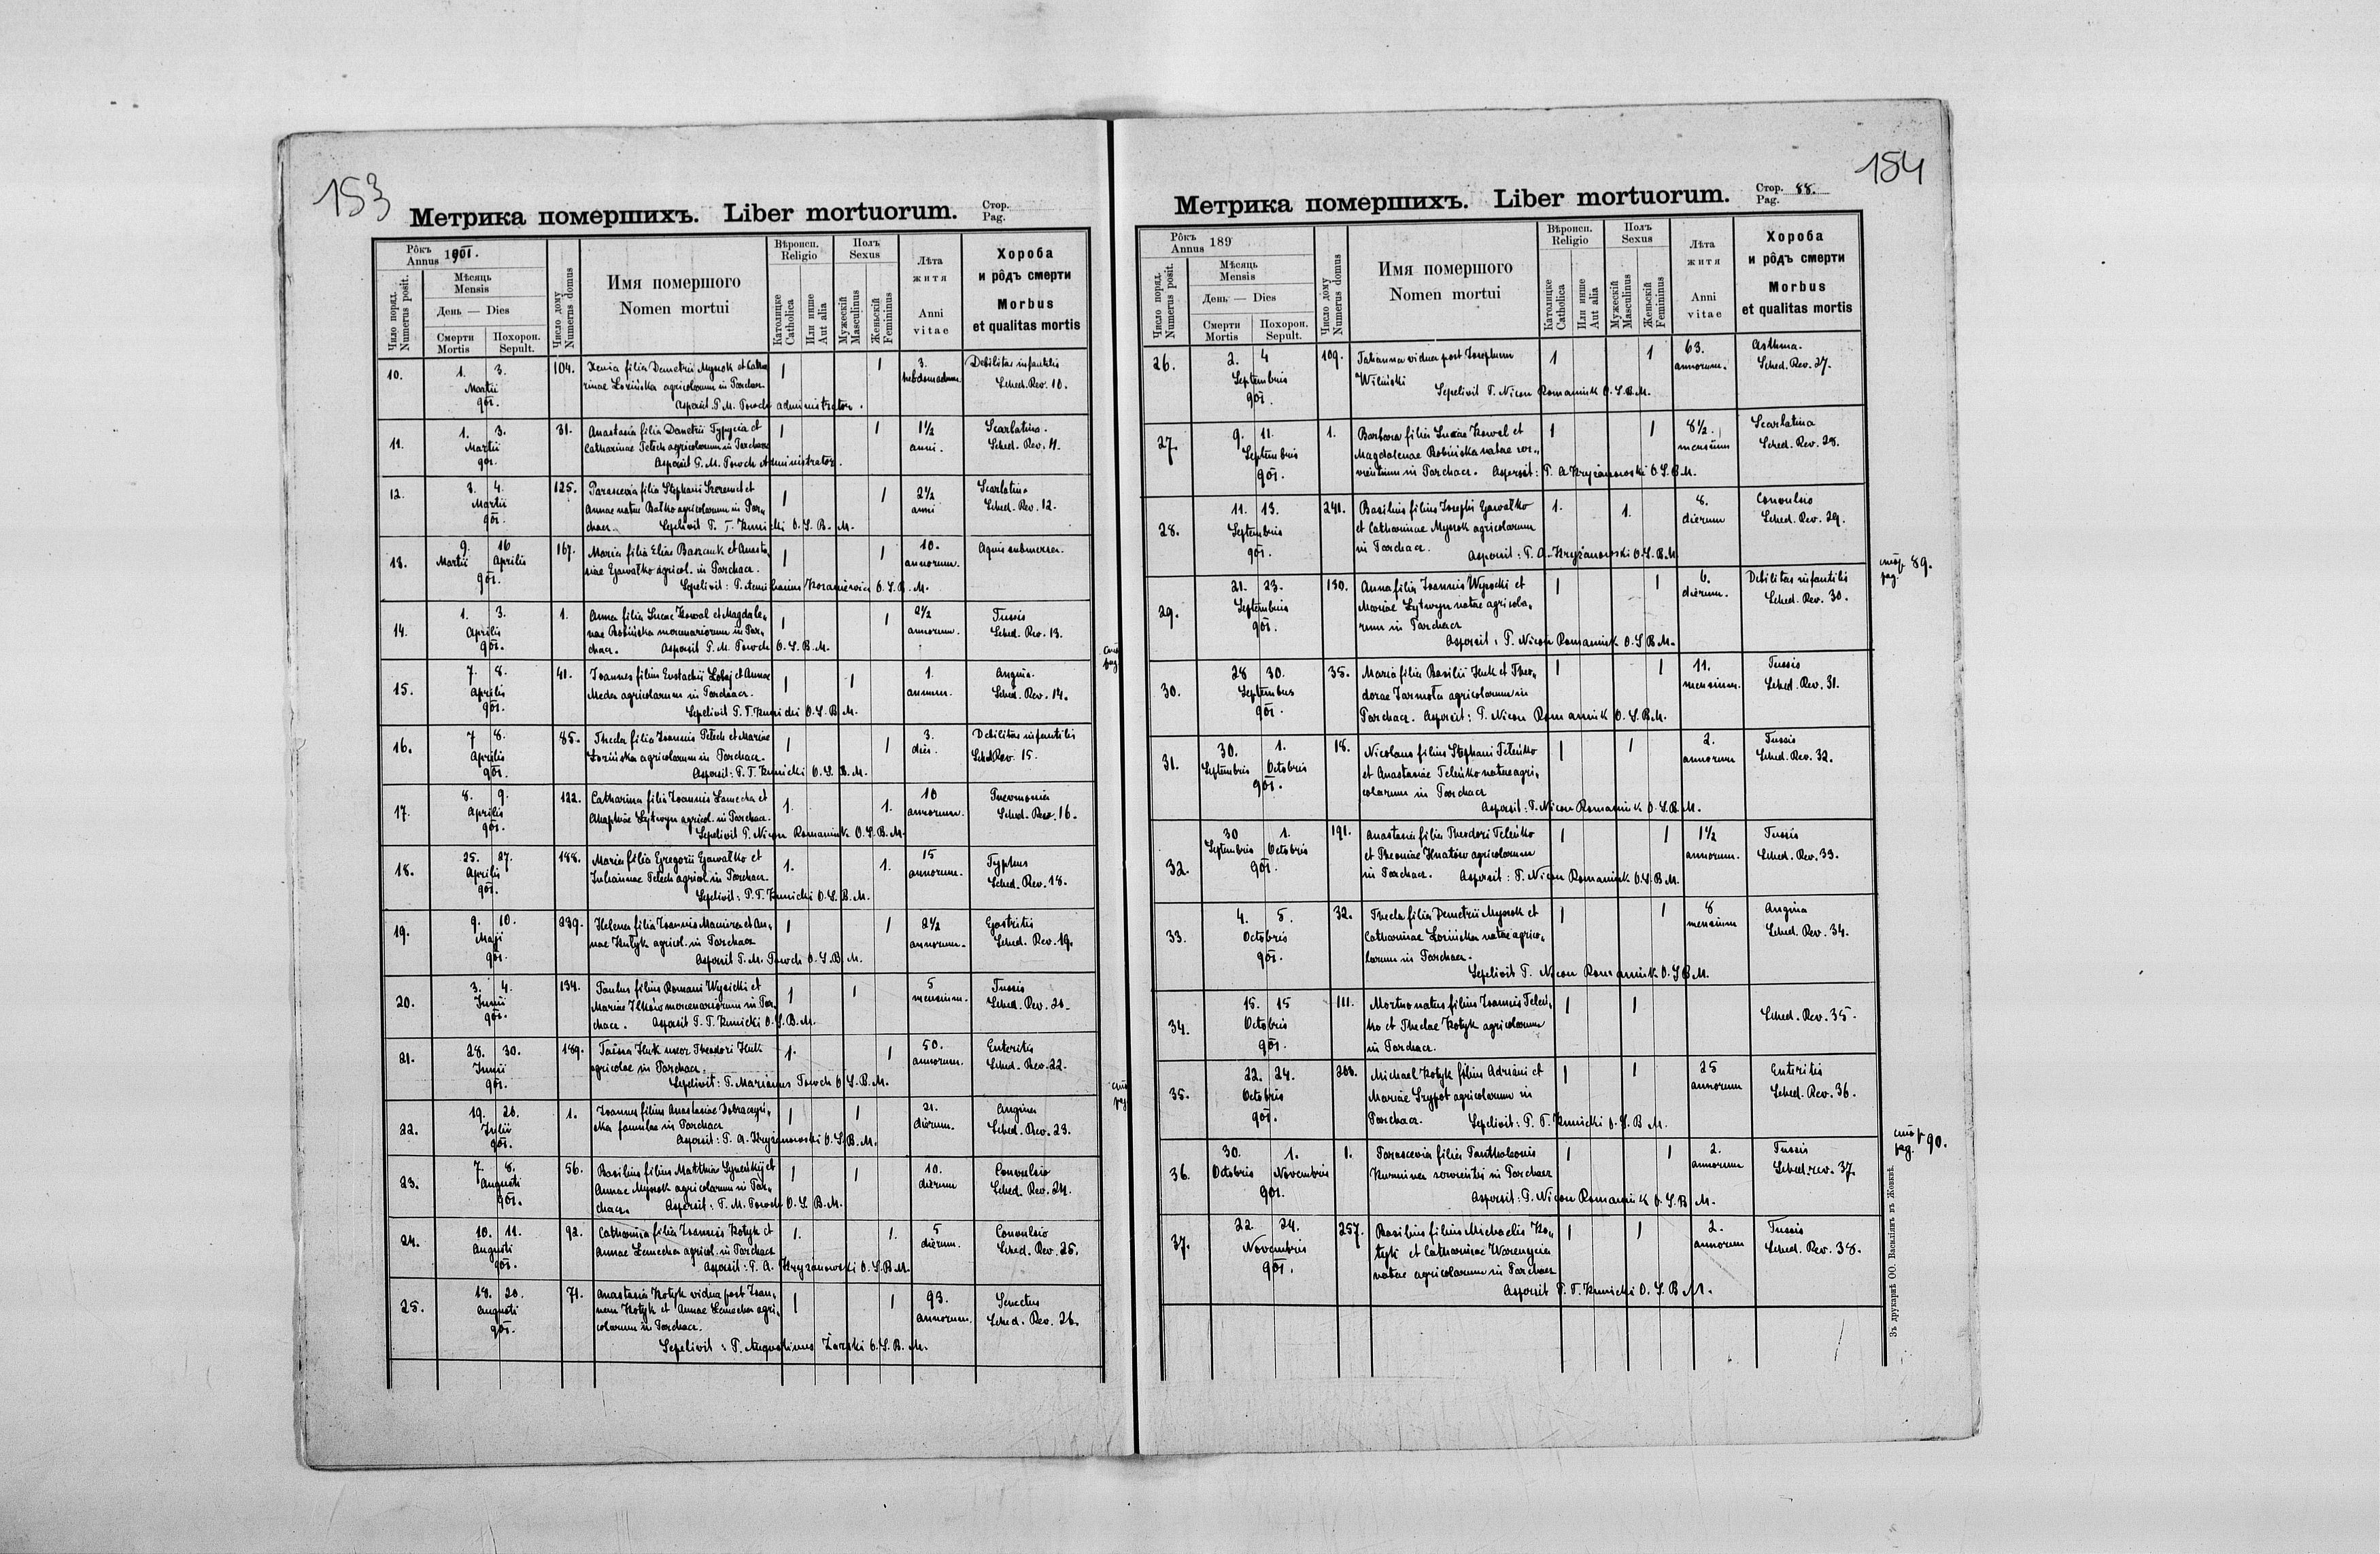 153
Метрика помершихъ. Liber mortuorum. Стор. Pag.
Рôкъ Annus 1901.
Число поряд. Numerus posit.
Мѣсяць Mensis
День — Dies
Смерти Mortis
Похорон. Sepult.
Число дому Numerus domus
Имя помершого Nomen mortui
Вѣроисп. Religio
Католицке Catholica
Или инше Aut alia
Полъ Sexus
Мужескій Masculinus
Женьскій Femininus
Лѣта житя Anni vitae
Хороба и рôдъ смерти Morbus et qualitas mortis
10. 1. 3. Martii 901. 104. Xenia filia Demetrii Myssok et Catha
rinae Łozińska agricolarum in Parchacz. 1 1 3. hebdomadum Debilitas infantilis
Sched. Rev. 10.
Aspersit P. M. Powch administrator.
11. 1. 3. Martii 901. 31. Anastasia filia Demetrii Typycia et
Catharinae Petech agricolarum in Parchacz 1 1 1½ anni. Scarlatina.
Sched. Rev. 11.
Aspersit P. M. Powch Administrator.
12. 3. 4. Martii 901. 125. Parascevia filia Stephani Szeremet et
Annae natae Bałko agricolarum in Par„
chacz. Sepelivit P. T. Kunicki O. S. B. M. 1 1 2½ anni Scarlatina
Sched. Rev. 12.
13. 9. Martii 16 Aprilis 901. 167. Maria filia Eliae Baszczuk et Anasta„
siae Gawałko agricol. in Parchacz. 1 1 10. annorum. Aquis submersa.
Sepelivit: P. Aemilianus O. S. B. M.
14. 1. 3. Aprilis 901. 1. Anna filia Lucae Kowal et Magdale„
nae Robińska mercenariorum in Par„
chacz. Aspersit P. M. Powch O. S. B. M. 1 1 2½ annorum. Tussis
Sched. Rev. 13.
15. 7. 8. Aprilis 901. 41. Joannes filius Eustachii Łobaj et Annae
Meder agricolarum in Parchacz. 1 1 1. annum. Angina.
Sched. Rev. 14.
Sepelivit P. T. Kunicki O. S. B. M.
16. 7 8. Aprilis 901. 85. Thecla filia Joannis Petech et Mariae
Łozińska agricolarum in Parchacz. 1 1 3. dies. Debilitas infantilis
Sched. Rev. 15.
Aspersit: P. T. Kunicki O. S. B. M.
17. 8. 9. Aprilis 901. 122. Catharina filia Joannis Łemecha et
Agaphiae Łytwyn agricol. in Parchacz. 1. 1. 10 annorum. Pnevmonia
Sched. Rev. 16.
Sepelivit P. Nicon Romaniuk O. S. B. M.
18. 25. 27. Aprilis 901. 188. Maria filia Gregorii Gawałko et
Julianae Petech agricol. in Parchacz. 1. 1. 15 annorum. Typhus
Sched. Rev. 18.
Sepelivit: P. T. Kunicki O. S. B. M.
19. 9. 10. Maji 901. 239. Helena filia Joannis Maciura et An„
nae Kutyk agricol. in Parchacz 1 1 2½ annorum. Gastritis
Sched. Rev. 19.
Aspersit P. M. Powch O. S. B. M.
20. 3. 4. Junii 901. 134. Paulus filius Romani Wysicki et
Mariae Ilków mercenariorum in Par„
chacz. Aspersit P. T. Kunicki O. S. B. M. 1 1 5 mensium. Tussis
Sched. Rev. 21.
21. 28. 30. Junii 901. 189. Taissa Huk uxor Theodori Huk
agricolae in Parchacz. 1. 1 50. annorum. Enteritis
Sched. Rev. 22.
Sepelivit: P. Marianus Powch O. S. B. M.
22. 19. 20. Julii 901. 1. Joannes filius Anastasiae Dobraczyń„
ska famulae in Parchacz 1 1 21. dierum. Angina
Sched. Rev. 23.
Aspersit: P. A. Kryżanowski O. S. B. M.
23. 7. 8. Augusti 901. 56. Basilius filius Matthiae Łyseńkyj et
Annae Myssok agricolarum in Par„
chacz. Aspersit: P. M. Powch O. S. B. M. 1 1 10. dierum Convulsio
Sched. Rev. 24.
24. 10. 11. Augusti 901. 92. Catharina filia Joannis Kotyk et
Annae Łemecha agricol. in Parchacz 1. 1. 5 dierum. Convulsio
Sched. Rev. 25.
Aspersit: P. A. Kryżanowski O. S. B. M.
25. 18. 20. Augusti 901. 71. Anastasia Kotyk vidua post Joan„
nem Kotyk et Annae Łemecha agri„
colarum in Parchacz. 1 1 93. annorum. Senectus
Sched. Rev. 26.
Sepelivit: P. Augustinus Żarski O. S. B. M.
154
Метрика помершихъ. Liber mortuorum. Стор. Pag. 88.
Рôкъ Annus 189
Число поряд. Numerus posit.
Мѣсяць Mensis
День — Dies
Смерти Mortis
Похорон. Sepult.
Число дому Numerus domus
Имя помершого Nomen mortui
Вѣроисп. Religio
Католицке Catholica
Или инше Aut alia
Полъ Sexus
Мужескій Masculinus
Женьскій Femininus
Лѣта житя Anni vitae
Хороба и рôдъ смерти Morbus et qualitas mortis
26. 2. 4 Septembris 901. 109. Tatianna vidua post Josephum
Wiliński 1 1 63. annorum. Asthma.
Sched. Rev. 27.
Sepelivit P. Nicon Romaniuk O. S. B. M.
27. 9. 11. Septembris 901. 1. Barbara filia Lucae Kowal et
Magdalenae Robińska natae ser„
vientium in Parchacz. Aspersit: P. A. Kryżanowski O. S. B. M. 1 1 8½. mensium Scarlatina
Sched. Rev. 28.
28. 11. 13. Septembris 901. 241. Basilius filius Josephi Gawałko
et Catharinae Myssok agricolarum
in Parchacz. Aspersit: P. A. Kryżanowski O. S. B. M 1. 1. 8. dierum Convulsio
Sched. Rev. 29.
стор. pag. 89.
29. 21. 23. Septembris 901. 130. Anna filia Joannis Wysocki et
Mariae Łytwyn natae agricola„
rum in Parchacz 1 1 6. dierum. Debilitas infantilis
Sched. Rev. 30.
Aspersit: P. Nicon Romaniuk O. S. B. M.
30. 28 30. Septembris 901. 35. Maria filia Basilii Huk et Theo„
dorae Jarmoła agricolarum in
Parchacz. Aspersit: P. Nicon Romaniuk O. S. B. M. 1 1 11. mensium. Tussis
Sched. Rev. 31.
31. 30. Septembris 1. Octobris 901. 18. Nicolaus filius Stephani Teleńko
et Anastasiae Teleńko natae agri„
colarum in Parchacz 1 1 2. annorum Tussis
Sched. Rev. 32.
Aspersit: P. Nicon Romaniuk O. S. B. M.
32. 30 Septembris 1. Octobris 901. 191. Anastasia filia Theodori Teleńko
et Pheoniae Hnatów agricolarum
in Parchacz. Aspersit: P. Nicon Romaniuk O. S. B. M. 1 1 1½ annorum. Tussis
Sched. Rev. 33.
33. 4. 5. Octobris 901. 32. Thecla filia Demetrii Myssok et
Catharinae Łozińska natae agrico„
larum in Parchacz. 1 1 8 mensium Angina
Sched. Rev. 34.
Sepelivit P. Nicon Romaniuk O. S. B. M.
34. 15. 15 Octobris 901. 111. Mortuo natus filius Joannis Teleń„
ko et Theclae Kotyk agricolarum
in Parchacz. 1 1 Sched. Rev. 35.
35. 22. 24. Octobris 901. 208. Michael Kotyk filius Adriani et
Mariae Grypot agricolarum in
Parchacz. Sepelivit: P. T. Kunicki O. S. B. M. 1 1 25 annorum Enteritis
Sched. Rev. 36.
стор. pag. 90.
36. 30. Octobris 1. Novembris 901. 1. Parascevia filia Pantholeonis
Kurminer servientis in Parchacz 1 1 2. annorum Tussis
Sched. rev. 37.
Aspersit: P. Nicon Romaniuk O. S. B. M.
37. 22 24. Novembris 901. 257. Basilius filius Michaelis Ko„
tyk et Catharinae Warenycia
natae agricolarum in Parchacz 1 1 2. annorum Tussis
Sched. Rev. 38.
Aspersit P. T. Kunicki O. S. B. M.
Зъ друкарнѣ ОО. Василіянъ въ Жовквѣ.